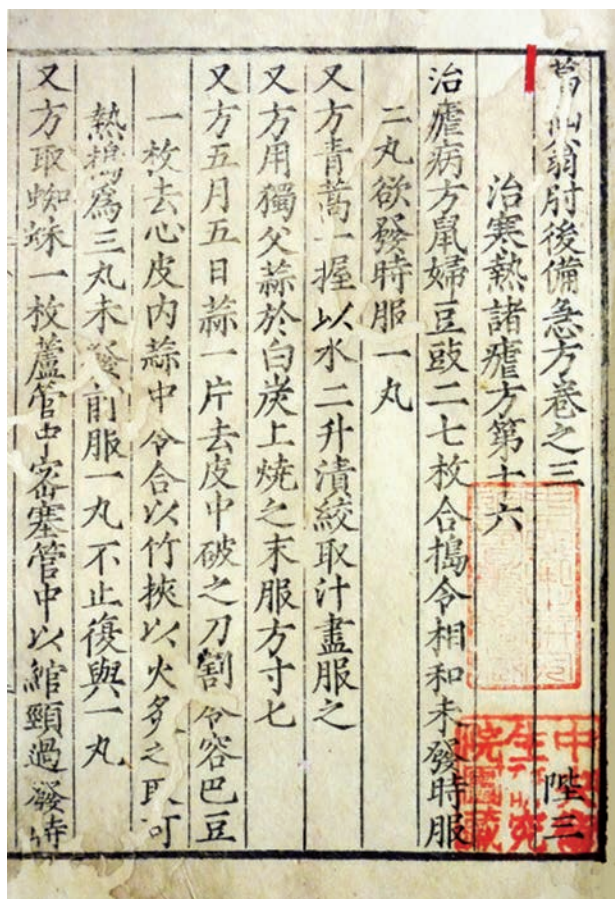 葛仙翁肘後備急方卷之三 陛三
治寒熱諸瘧方第十六
治瘧病方鼠婦豆豉二七枚合搗令相和未發時服
二丸欲發時服一丸
又方青蒿一握以水二升漬絞取汁盡服之
又方用獨父蒜於白炭上燒之末服方寸匕
又方五月五日蒜一片去皮中破之刀割令容巴豆
一枚去心皮内蒜中令合以竹挾以火炙之取可
熱搗為三丸未發前服一丸不止復與一丸
又方取蜘蛛一枚蘆管中密塞管中以綰頸過發時
中 院圖藏